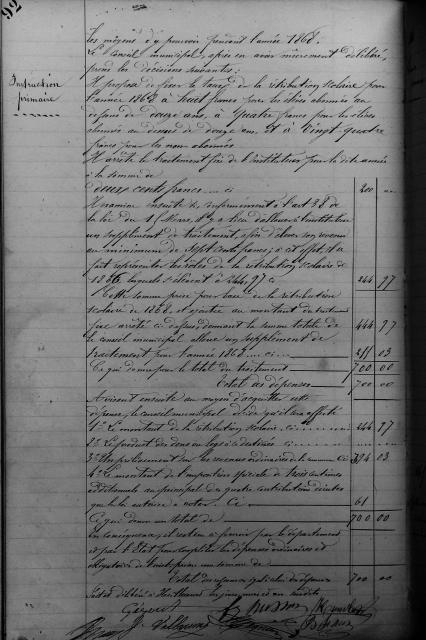 92
les moyens d'y pourvoir pendant l'année 1868.
Le Conseil municipal, après en avoir mûrement délibéré,
prend les décisions suivantes :
Instruction
primaire
Il propose de fixer le taux de la rétribution scolaire pour
l'année 1868 à huit francs pour les élèves abonnés au
dessous de douze ans, à quatre francs pour les élèves
abonnés au dessus de douze ans et à vingt-quatre
francs pour les non abonnés.
Il arrête le traitement fixe de l'instituteur pour la dite année
à la somme de
deux cents francs ... ci 200
Il examine ensuite si, conformément à l'art 38 de
la loi du 15 Mars, il y a lieu d'allouer à l'instituteur
un supplément de traitement, afin d'élever son revenu
au minimum de Sept cents francs; à cet effet, il a
fait représenter les rôles de la rétribution scolaire de
1866, lesquels s'élèvent à 244, 97 ci 244 97
Cette somme prise pour base de la rétribution
scolaire de 1868, et ajoutée au montant du traitement
fixe arrêté ci dessus, donnant la somme totale de 444 97
le conseil municipal alloue un supplément de
traitement pour l'année 1868 ... ci 255 03
Ce qui donne pour le total du traitement 700 00
Total des dépenses 700 00
Avisant ensuite au moyen d'acquitter cette
dépense, le conseil municipal décide qu'il sera affecté
1° Le montant de la rétribution scolaire ci 244 97
2° Le produit des dons ou legs à ce destinés ci
3° Un prélèvement sur les revenus ordinaires de la commune ci 394 03
4° Le montant de l'imposition spéciale de trois centimes
additionnels au principal des quatre contributions directes
ci 61
Ce qui donne un total de 700 00
En conséquence, il restera à fournir par le département
et par l'Etat pour compléter les dépenses ordinaires et
obligatoires de une somme de
Total des ressources égal à celui des dépenses 700 00
Fait et délibéré à les jour, mois et an susdits